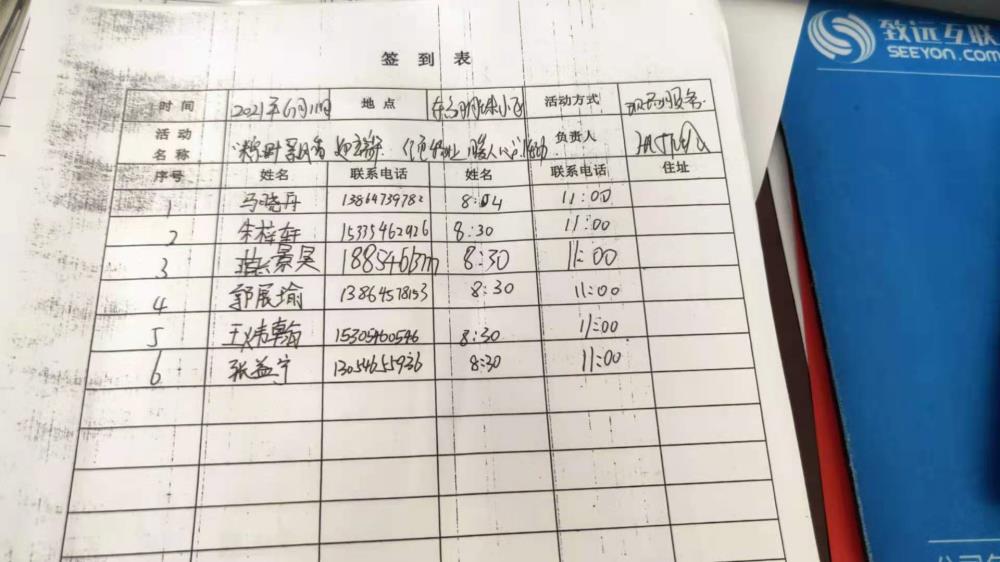 致远互联
SEEYON.COM
签到表
时间 2021年6月11日 地点 小区 活动方式 服务
活动名称 粽叶飘香 迎端 暖人心活动 负责人
序号 姓名 联系电话 姓名 联系电话 住址
1 马晓丹 13864739782 8:04 11:00
2 朱梓轩 15335462926 8:30 11:00
3 景昊 8:30 11:00
4 郭展瑜 13864578153 8:30 11:00
5 王炜翰 15305460546 8:30 11:00
6 张益宁 13054655936 8:30 11:00